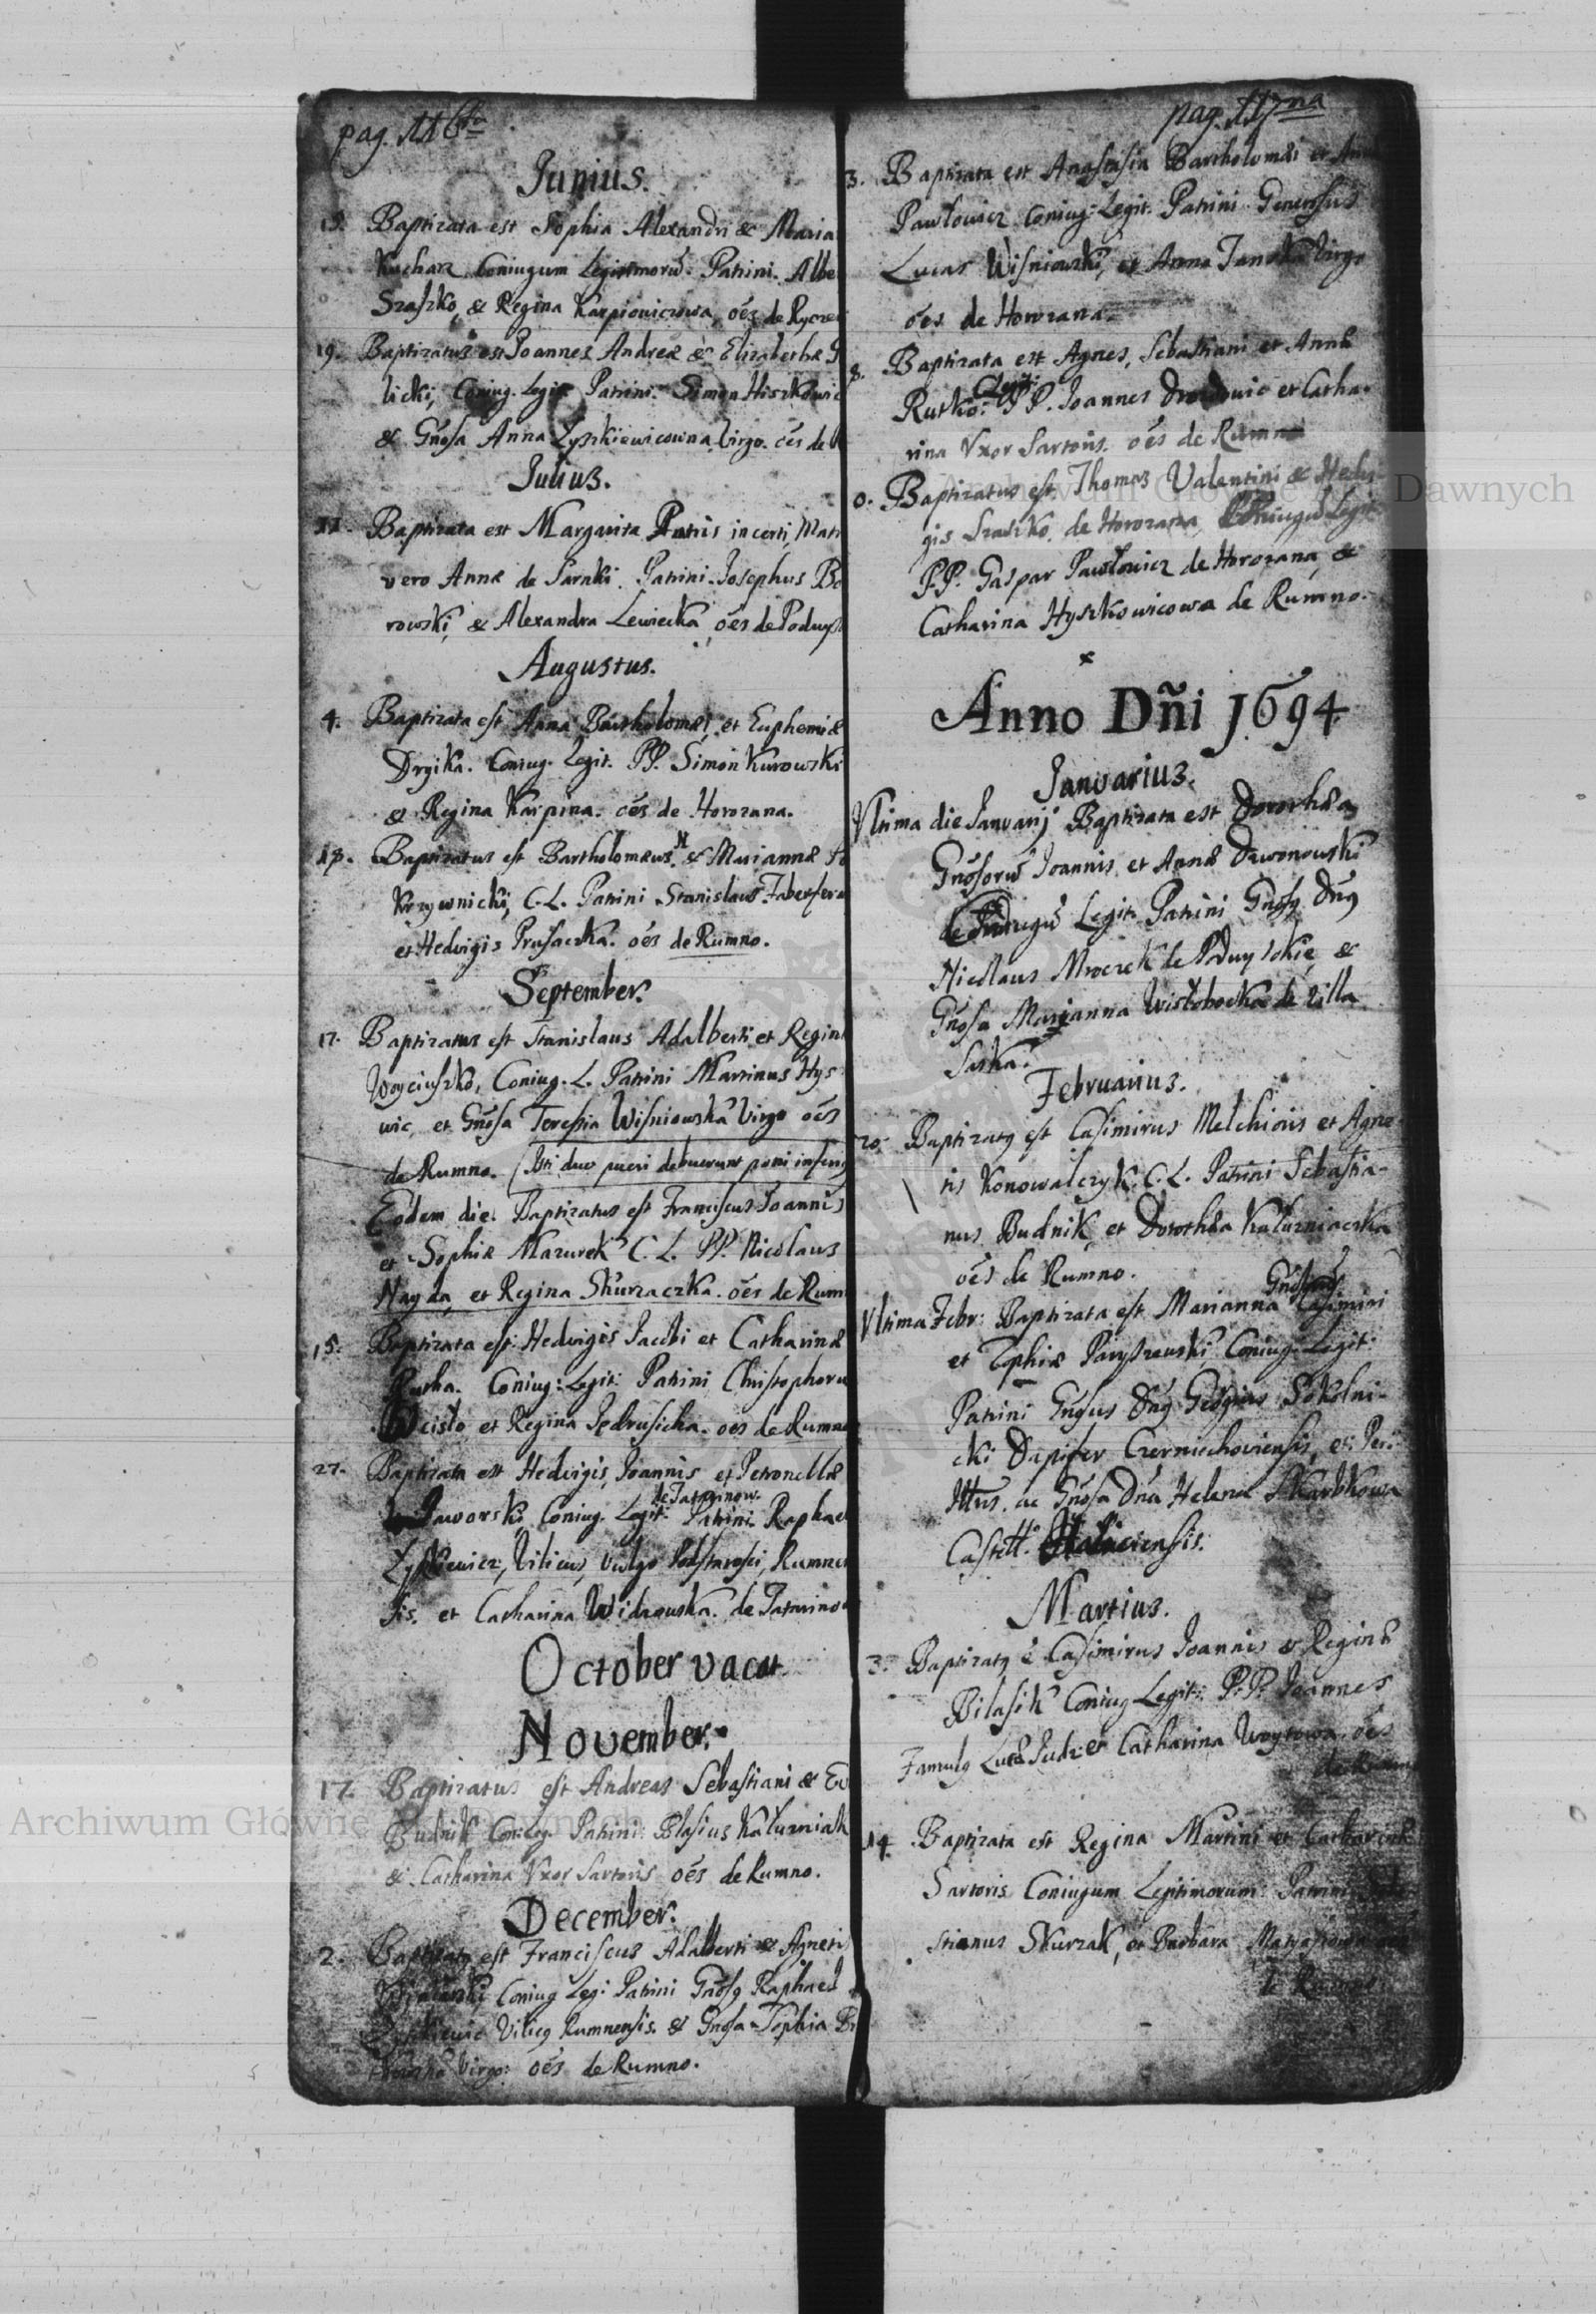 pag. 116ta
Junius.
15. Baptizata est Sophia Alexandri & Maria
Kucharz Coniugum Legitimorũ. Patrini. Albe
Szaszko, & Regina Karpiowiczowa, oẽs de Rycze
19. Baptizatus est Joannes Andreæ & Elizabethæ
licki, Coniug. Legit. Patrini. Simon Hiszkowic
& Gñosa Anna Lyszkiewicowna Virgo. oẽs de
Julius.
11. Baptizata est Margarita Patris incerti, Matr
vero Annæ de Sarnki. Patrini Josephus Bo
rowski, & Alexandra Lewicka, oẽs de Podwys
Augustus.
4. Baptizata est Anna Bartholomæi, et Euphemiæ
Dryika. Coniug. Legit. PP. Simon Kurowski
& Regina Karpina. oẽs de Horozana.
18. Baptizatus est Bartholomæus N & Mariannæ
Krzywnicki, C. L. Patrini Stanislaus Faber ferr
et Hedvigis Prusaczka. oẽs de Rumno.
September.
17. Baptizatus est Stanislaus Adalberti et Regin
Woyciuszko, Coniug. L. Patrini Martinus Hys
wic, et Gñosa Teressia Wisniowska Virgo oẽs
de Rumno. (Isti duo pueri debuerunt poni
Eodem die. Baptizatus est Franciscus Joannis
et Sophiæ Mazurek C. L. PP. Nicolaus
Nayda, et Regina Skurzaczka. oẽs de Rum
15. Baptizata est Hedvigis Jacobi et Catharinæ
Coniug: Legit: Patrini Christophoru
et Regina Jedrusicha. oẽs de Rumno
27. Baptizata est Hedvigis, Joannis et Petronellæ
Jaworski, Coniug. Legit. de Tatarinow. Patrini. Raphael
Vilicus, vulgo Podstarosci, Rumne
sis. et Catharina Widrowska. de Tatarino
October vacat
November.
17. Baptizatus est Andreas Sebastiani & Ev
Budnik Con: Leg. Patrini: Blasius Kałuzniak
& Catharina Vxor Sartoris oẽs de Rumno.
December.
2. Baptizatꝰ est Franciscus Adalberti & Agneti
Coniug Leg: Patrini Gñosꝰ Raphael
Vilicꝰ Rumnensis. & Gñosa Sophia
Virgo: oẽs de Rumno.
pag. 117ma
3. Baptizata est Anastasia Bartholomæi et An
Pawlowicz Coniug: Legit. Patrini Generosus
Lucas Wisniowski, et Anna Janska Virgo
oẽs de Horozana.
8. Baptizata est Agnes, Sebastiani et Annæ
Rutko. C Legit: PP. Joannes Drozdowic et Catha-
rina Vxor Sartoris. oẽs de Rumno
0. Baptizatus est Thomas Valentini & Hedvi
gis Szaszko, de Horozana, Coniugũ Legit.
PP. Gaspar Pawlowicz de Horozana, &
Catharina Hyszkowicowa de Rumno.
Anno Dñi 1694
Januarius.
Vltima die Januarij Baptizata est Dorothæa
Gñosorũ Joannis et Annæ Dzwonowski
Legit. Patrini Gñosꝰ Dñꝰ
Nicolaus Mroczek de Podwysokie &
Gñosa Marianna Wislobocka de villa
Saska.
Februarius.
20. Baptizatꝰ est Casimirus Melchioris et Agne-
tis Konowalczyk. C. L. Patrini Sebastia-
nus Budnik, et Dorothea Kałuzniaczka
oẽs de Rumno.
Vltima Febr: Baptizata est Marianna Gñosorũ Casimiri
et Sophiæ Paryszewski, Coniug. Legit:
Patrini Gñosus Dñꝰ Georgius Sokolni-
cki Dapifer Czerniechoviensis, et Per-
Illtris. ac Gñosa Dña Helena Skarbkowa
Castell. Haliciensis.
Martius.
3. Baptizatꝰ ẽ Casimirus Joannis & Reginæ
Bilasik Coniug Legit: P.P. Joannes
Famulꝰ Lucæ et Catharina Woytowa. oẽs
de Rumno
14. Baptizata est Regina Martini et Catharinæ
Sartoris Coniugum Legitimorum: Patrini
stianus Skurzak, et Barbara
de Rumno.
Archiwum Główne Akt Dawnych
Archiwum Główne Akt Dawnych